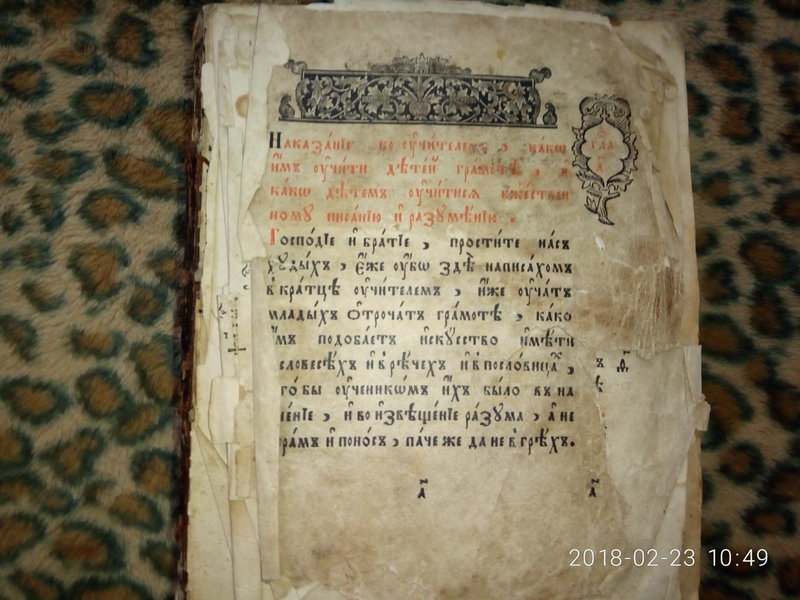 Наказа́нїе ко оу҆чи́телемъ, ка́кѡ
и҆̀мъ оу҆чи́ти дѣте́й гра́мотѣ, и҆
ка́кѡ дѣ́темъ оу҆чи́тисѧ бж҃е́ствен
ному писа́нїю и҆ разꙋмѣ́нїю.
Госпо́дїе и҆ бра́тїе, прости́те на́съ
хꙋды́хъ, є҆́же оу҆́бѡ здѣ̀ написа́хомъ
в кра́тцѣ оу҆чи́телемъ, и҆́же оу҆ча́тъ
млады́хъ ѻ҆троча́тъ гра́мотѣ, ка́кѡ
и҆̀мъ подоба́етъ и҆скꙋ́сство и҆мѣ́ти
словесѣ́хъ и҆ в рѣ́чехъ и҆ в посло́вица,
го́ бы оу҆ченикѡ́мъ и҆́хъ бы́ло в на
ше́нїе, и҆ во и҆звѣще́нїе ра́зꙋма, а҆ не
ра́мъ и҆ поно́съ, па́че же да не в грѣ́хъ.
а҃ а҃
2018-02-23 10:49